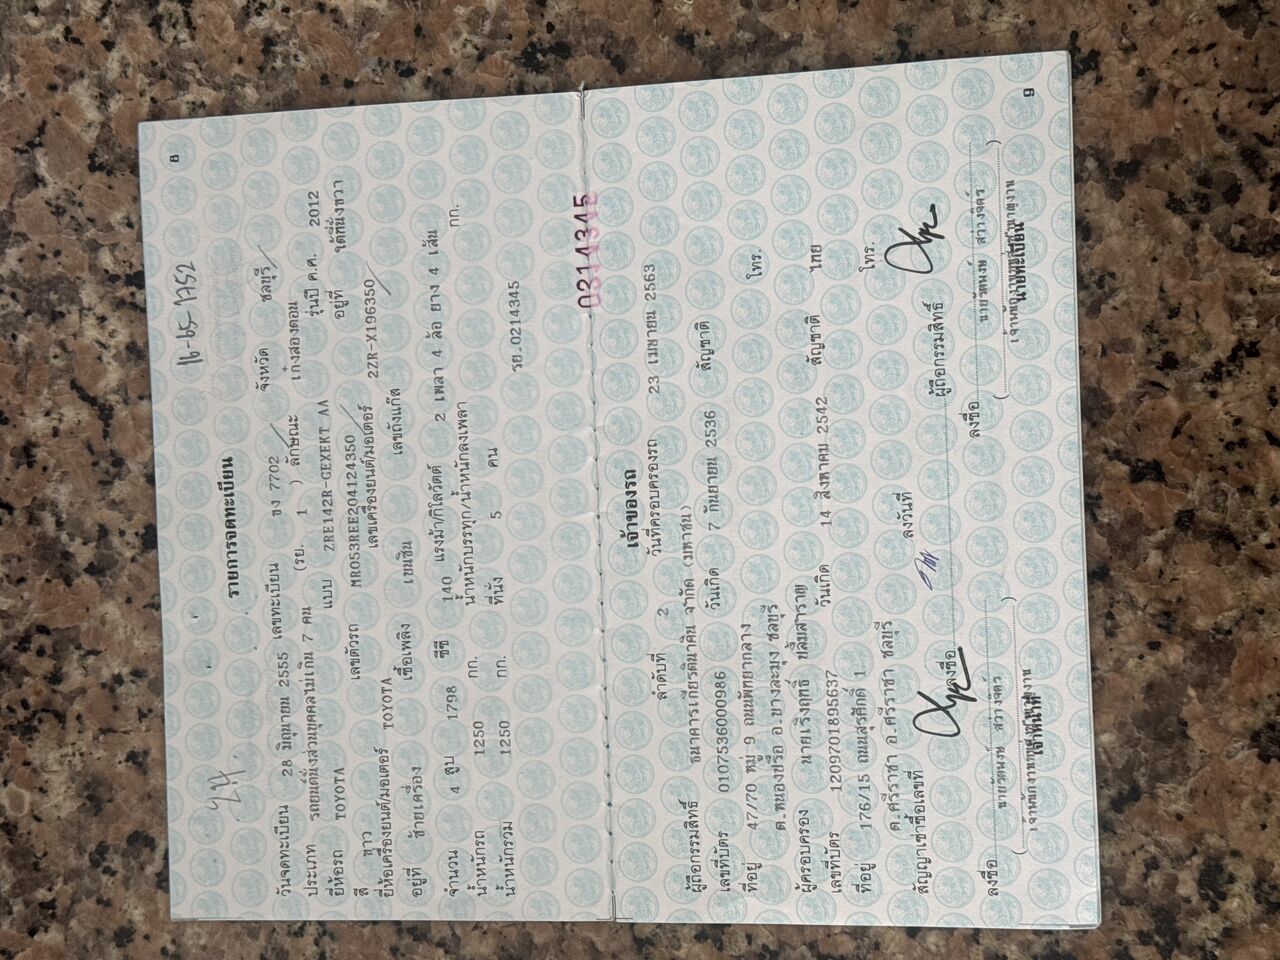 8
16-65-1752
24.
รายการจดทะเบียน
วันจดทะเบียน 28 มิถุนายน 2555 เลขทะเบียน ขง 7702 จังหวัด ชลบุรี
ประเภท รถยนต์นั่งส่วนบุคคลไม่เกิน 7 คน (รย. 1 ) ลักษณะ เก๋งสองตอน
ยี่ห้อรถ TOYOTA แบบ ZRE142R-GEXEKT AA รุ่นปี ค.ศ. 2012
สี ขาว เลขตัวรถ MR053REE204124350 อยู่ที่ ใต้ที่นั่งขวา
ยี่ห้อเครื่องยนต์/มอเตอร์ TOYOTA เลขเครื่องยนต์/มอเตอร์ 2ZR-X196350
อยู่ที่ ซ้ายเครื่อง เชื้อเพลิง เบนซิน เลขถังแก๊ส
จำนวน 4 สูบ 1798 ซีซี 140 แรงม้า/กิโลวัตต์ 2 เพลา 4 ล้อ ยาง 4 เส้น
น้ำหนักรถ 1250 กก. น้ำหนักบรรทุก/น้ำหนักลงเพลา กก.
น้ำหนักรวม 1250 กก. ที่นั่ง 5 คน
รย.0214345
0314345
เจ้าของรถ
ลำดับที่ 2 วันที่ครอบครองรถ 23 เมษายน 2563
ผู้ถือกรรมสิทธิ์ ธนาคารเกียรตินาคิน จำกัด (มหาชน)
เลขที่บัตร 0107536000986 วันเกิด 7 กันยายน 2536 สัญชาติ
ที่อยู่ 47/70 หมู่ 9 ถนนพัทยากลาง โทร.
ต.หนองปรือ อ.บางละมุง ชลบุรี
ผู้ครอบครอง นายเริงฤทธิ์ ปลื้มสำราญ
เลขที่บัตร 1209701895637 วันเกิด 14 สิงหาคม 2542 สัญชาติ ไทย
ที่อยู่ 176/15 ถนนสุรศักดิ์ 1 โทร.
ต.ศรีราชา อ.ศรีราชา ชลบุรี
สัญญาเช่าซื้อเลขที่ ลงวันที่ ผู้ถือกรรมสิทธิ์
ลงชื่อ
ลงชื่อ ลงชื่อ
นายรัตพงษ์ สว่างจิตร นายรัตพงษ์ สว่างจิตร
เจ้าหน้าที่ นายทะเบียน
9